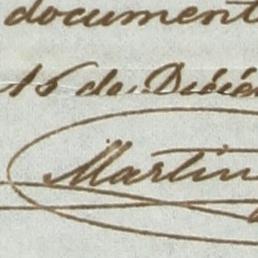 document
16 de Diciem
Martin